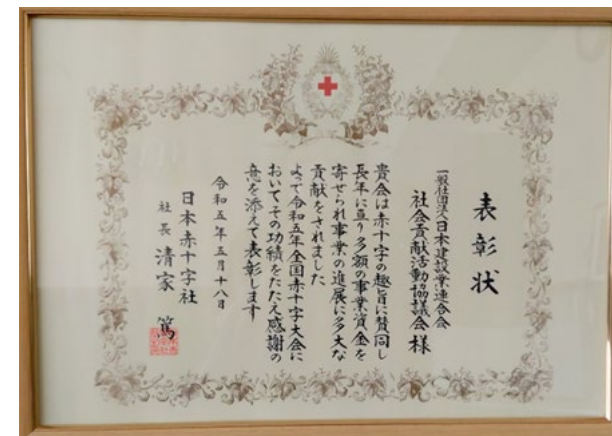 表彰状
一般社団法人日本建設業連合会
社会貢献活動協議会様
貴会は赤十字の趣旨に賛同し
長年に亘り多額の事業資金を
寄せられ事業の進展に多大な
貢献をされました
よって令和五年全国赤十字大会に
おいてその功績をたたえ感謝の
意を添えて表彰します
令和五年五月十八日
日本赤十字社
社長 清家 篤